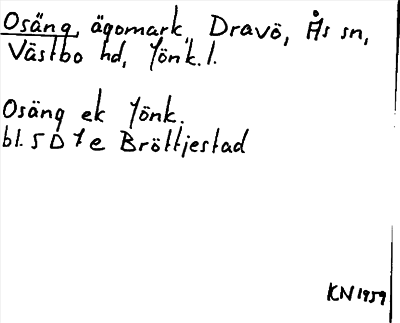 Osäng, ägomark, Dravö, Ås sn,
Västbo hd, Jönk. l.
Osäng ek Jönk.
bl. 5 D 7 e Bröttjestad
KN 1959